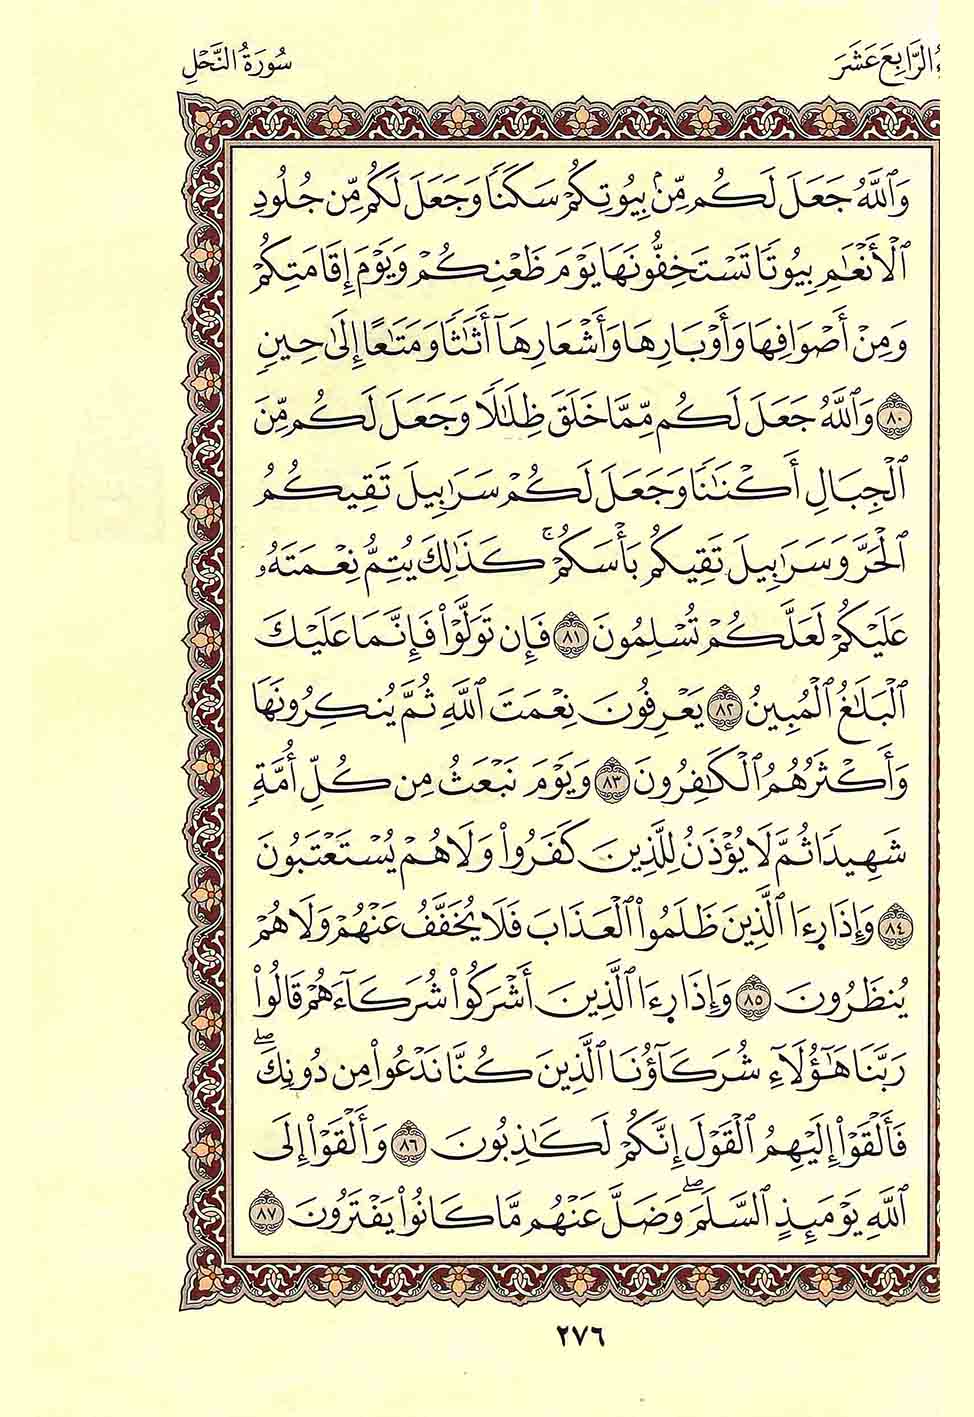 سُورَةُ النَّحْلِ
ءُ الرَّابِعَ عَشَرَ
وَٱللَّهُ جَعَلَ لَكُم مِّنۢ بُيُوتِكُمْ سَكَنًا وَجَعَلَ لَكُم مِّن جُلُودِ
ٱلْأَنْعَٰمِ بُيُوتًا تَسْتَخِفُّونَهَا يَوْمَ ظَعْنِكُمْ وَيَوْمَ إِقَامَتِكُمْ
وَمِنْ أَصْوَافِهَا وَأَوْبَارِهَا وَأَشْعَارِهَآ أَثَٰثًا وَمَتَٰعًا إِلَىٰ حِينٍ
٨٠ وَٱللَّهُ جَعَلَ لَكُم مِّمَّا خَلَقَ ظِلَٰلًا وَجَعَلَ لَكُم مِّنَ
ٱلْجِبَالِ أَكْنَٰنًا وَجَعَلَ لَكُمْ سَرَٰبِيلَ تَقِيكُمُ
ٱلْحَرَّ وَسَرَٰبِيلَ تَقِيكُم بَأْسَكُمْ ۚ كَذَٰلِكَ يُتِمُّ نِعْمَتَهُۥ
عَلَيْكُمْ لَعَلَّكُمْ تُسْلِمُونَ ٨١ فَإِن تَوَلَّوْا۟ فَإِنَّمَا عَلَيْكَ
ٱلْبَلَٰغُ ٱلْمُبِينُ ٨٢ يَعْرِفُونَ نِعْمَتَ ٱللَّهِ ثُمَّ يُنكِرُونَهَا
وَأَكْثَرُهُمُ ٱلْكَٰفِرُونَ ٨٣ وَيَوْمَ نَبْعَثُ مِن كُلِّ أُمَّةٍ
شَهِيدًا ثُمَّ لَا يُؤْذَنُ لِلَّذِينَ كَفَرُوا۟ وَلَا هُمْ يُسْتَعْتَبُونَ
٨٤ وَإِذَا رَءَا ٱلَّذِينَ ظَلَمُوا۟ ٱلْعَذَابَ فَلَا يُخَفَّفُ عَنْهُمْ وَلَا هُمْ
يُنظَرُونَ ٨٥ وَإِذَا رَءَا ٱلَّذِينَ أَشْرَكُوا۟ شُرَكَآءَهُمْ قَالُوا۟
رَبَّنَا هَٰٓؤُلَآءِ شُرَكَآؤُنَا ٱلَّذِينَ كُنَّا نَدْعُوا۟ مِن دُونِكَ ۖ
فَأَلْقَوْا۟ إِلَيْهِمُ ٱلْقَوْلَ إِنَّكُمْ لَكَٰذِبُونَ ٨٦ وَأَلْقَوْا۟ إِلَى
ٱللَّهِ يَوْمَئِذٍ ٱلسَّلَمَ ۖ وَضَلَّ عَنْهُم مَّا كَانُوا۟ يَفْتَرُونَ ٨٧
٢٧٦